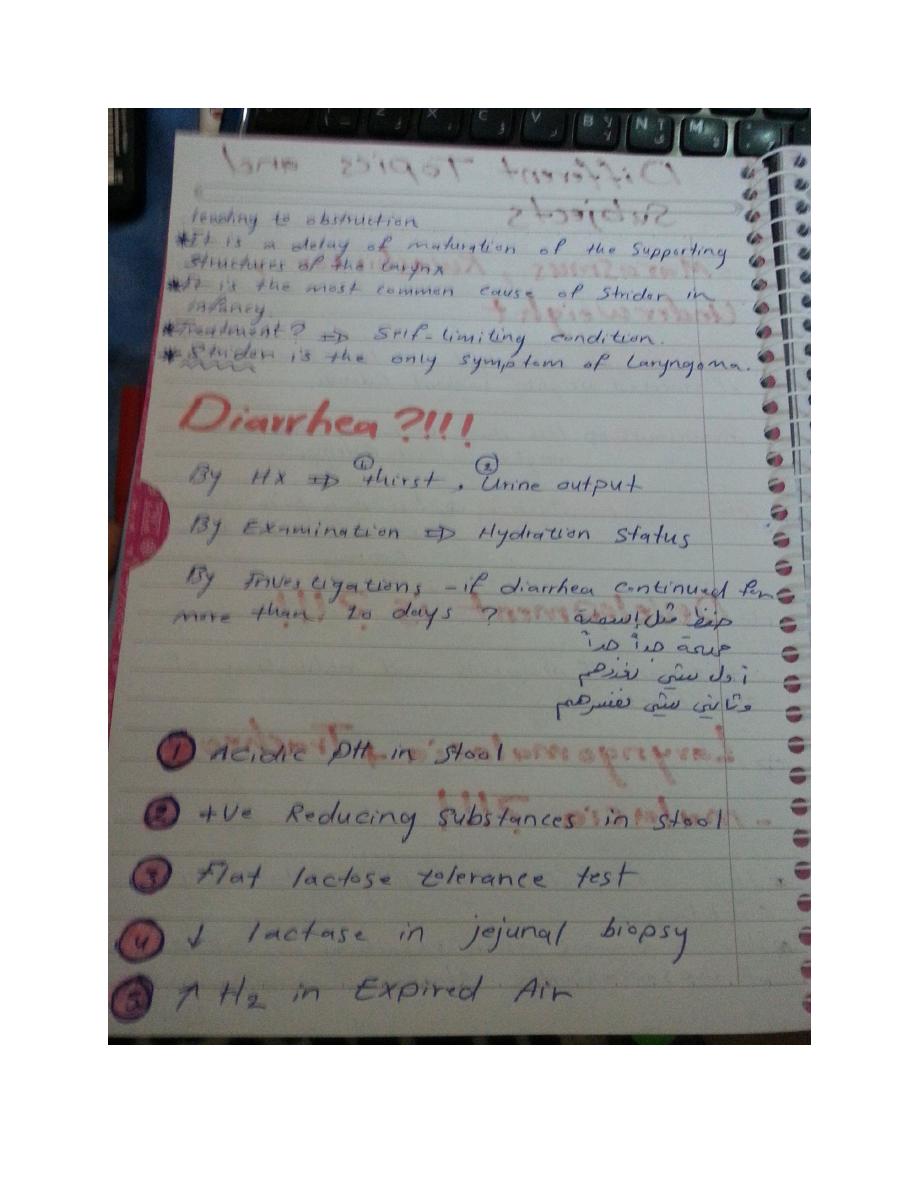 leading to obstruction
*It is a delay of maturation of the supporting
structures of the Larynx
*It is the most common cause of Stridor in
infancy.
*Treatment? ⇒ Self-limiting condition.
*Stridor is the only symptom of Laryngoma.
Diarrhea ?!!!
By HX ⇒ ① thirst, ② Urine output
By Examination ⇒ Hydration Status
By Investigations - if diarrhea continued for
more than 20 days ?
جداً جداً
أول شي
وثاني شي
1 Acidic PH in stool
2 +ve Reducing substances in stool
3 Flat lactose tolerance test
4 ↓ lactase in jejunal biopsy
5 ↑ H2 in Expired Air